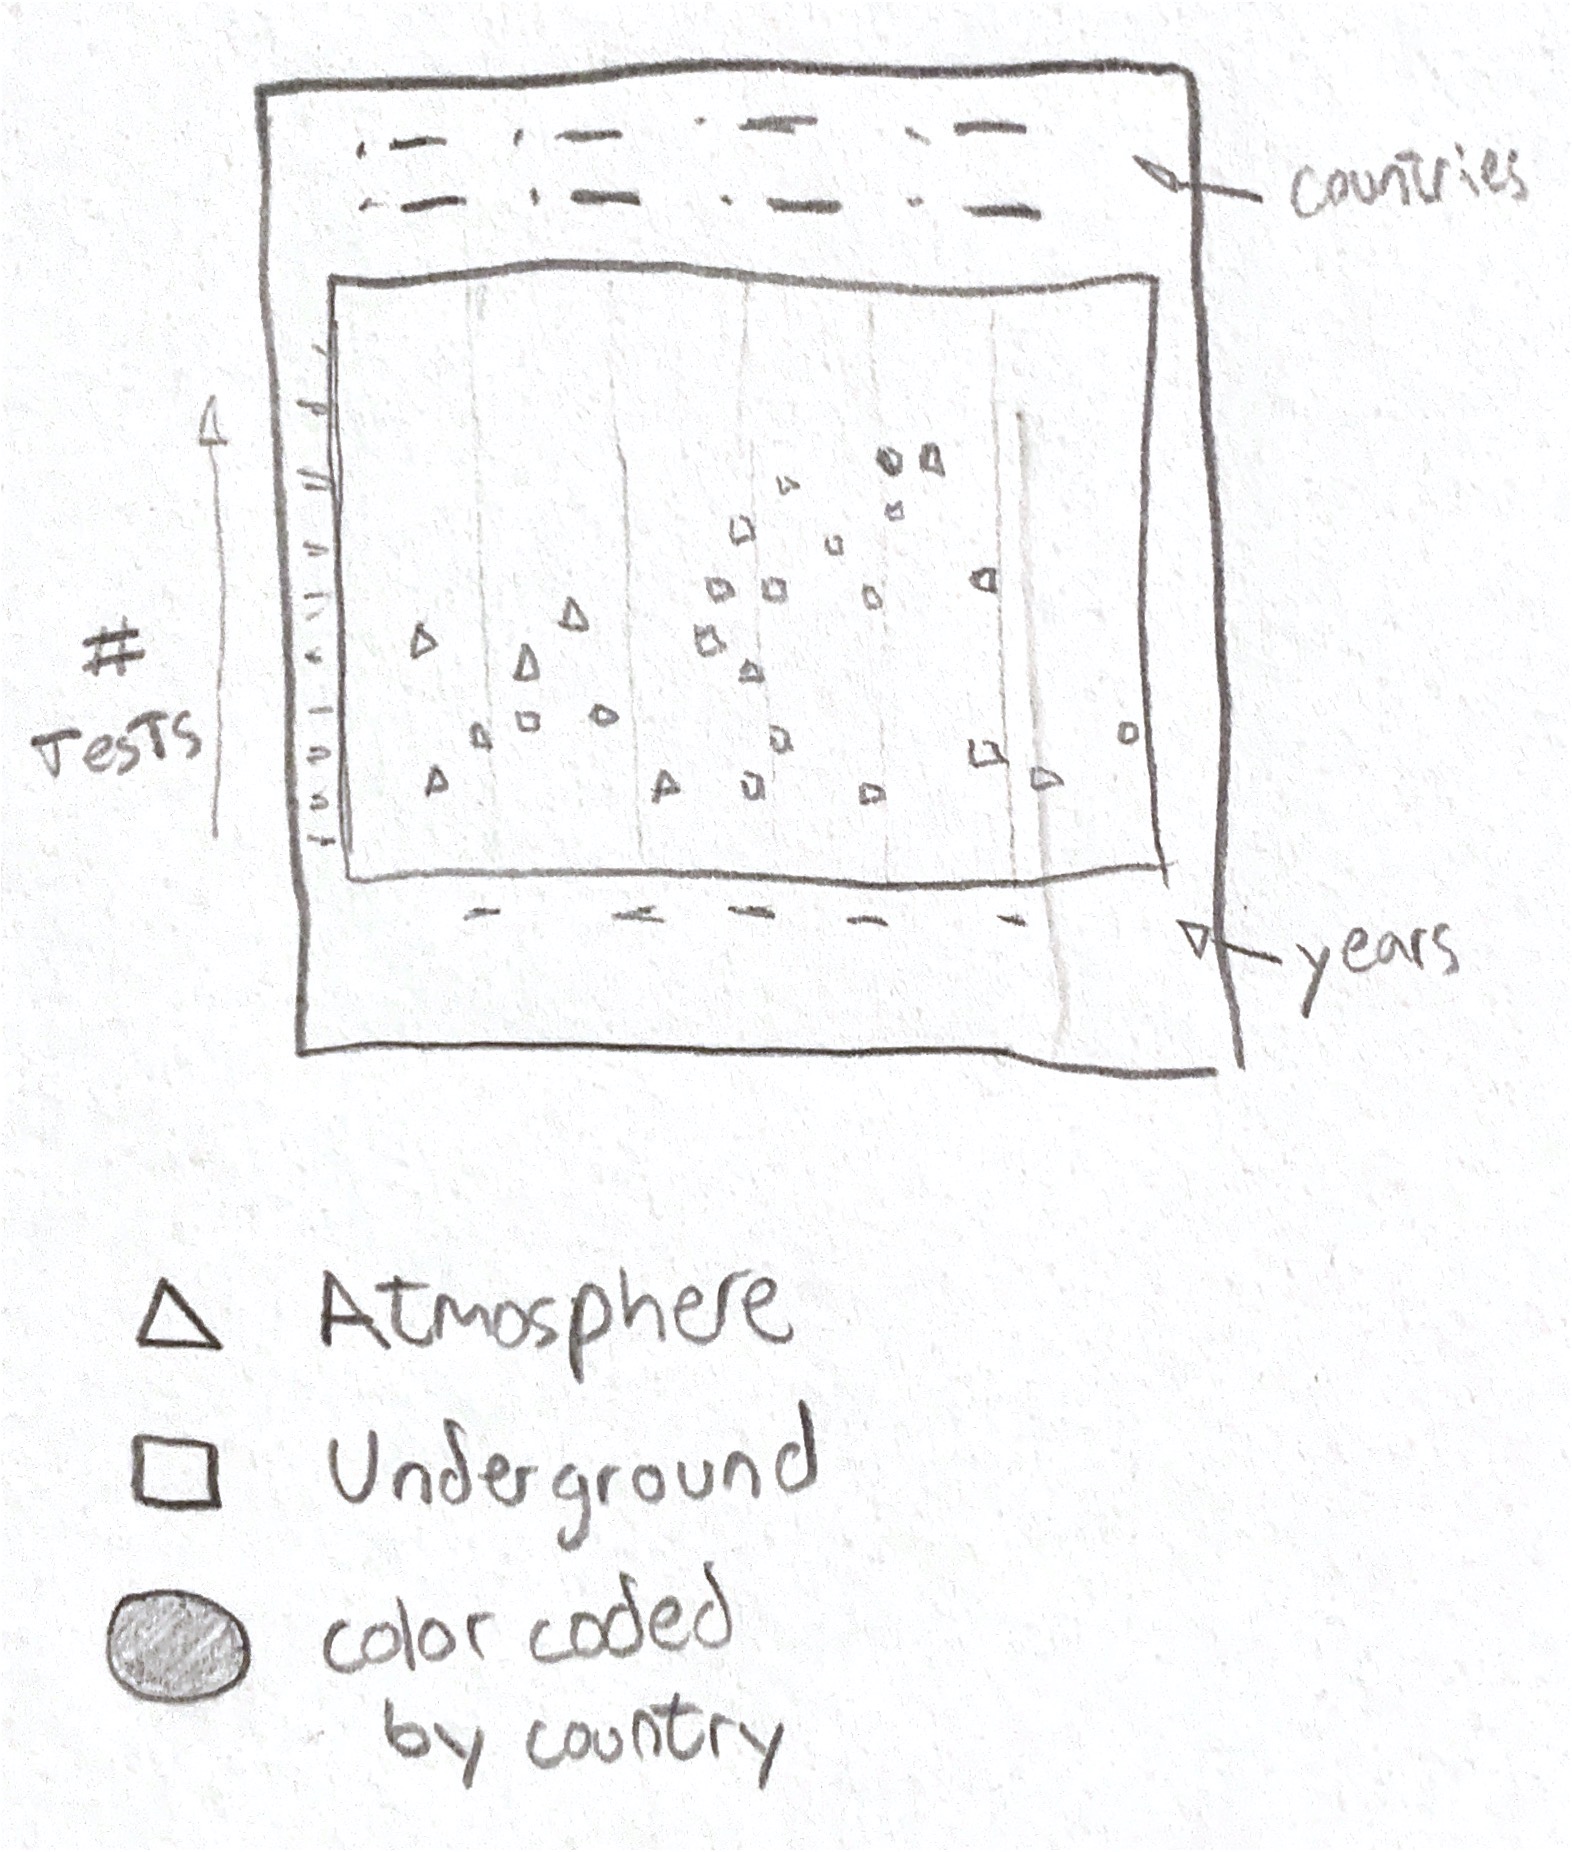 countries
#
Tests
years
Atmosphere
Underground
color coded
by country